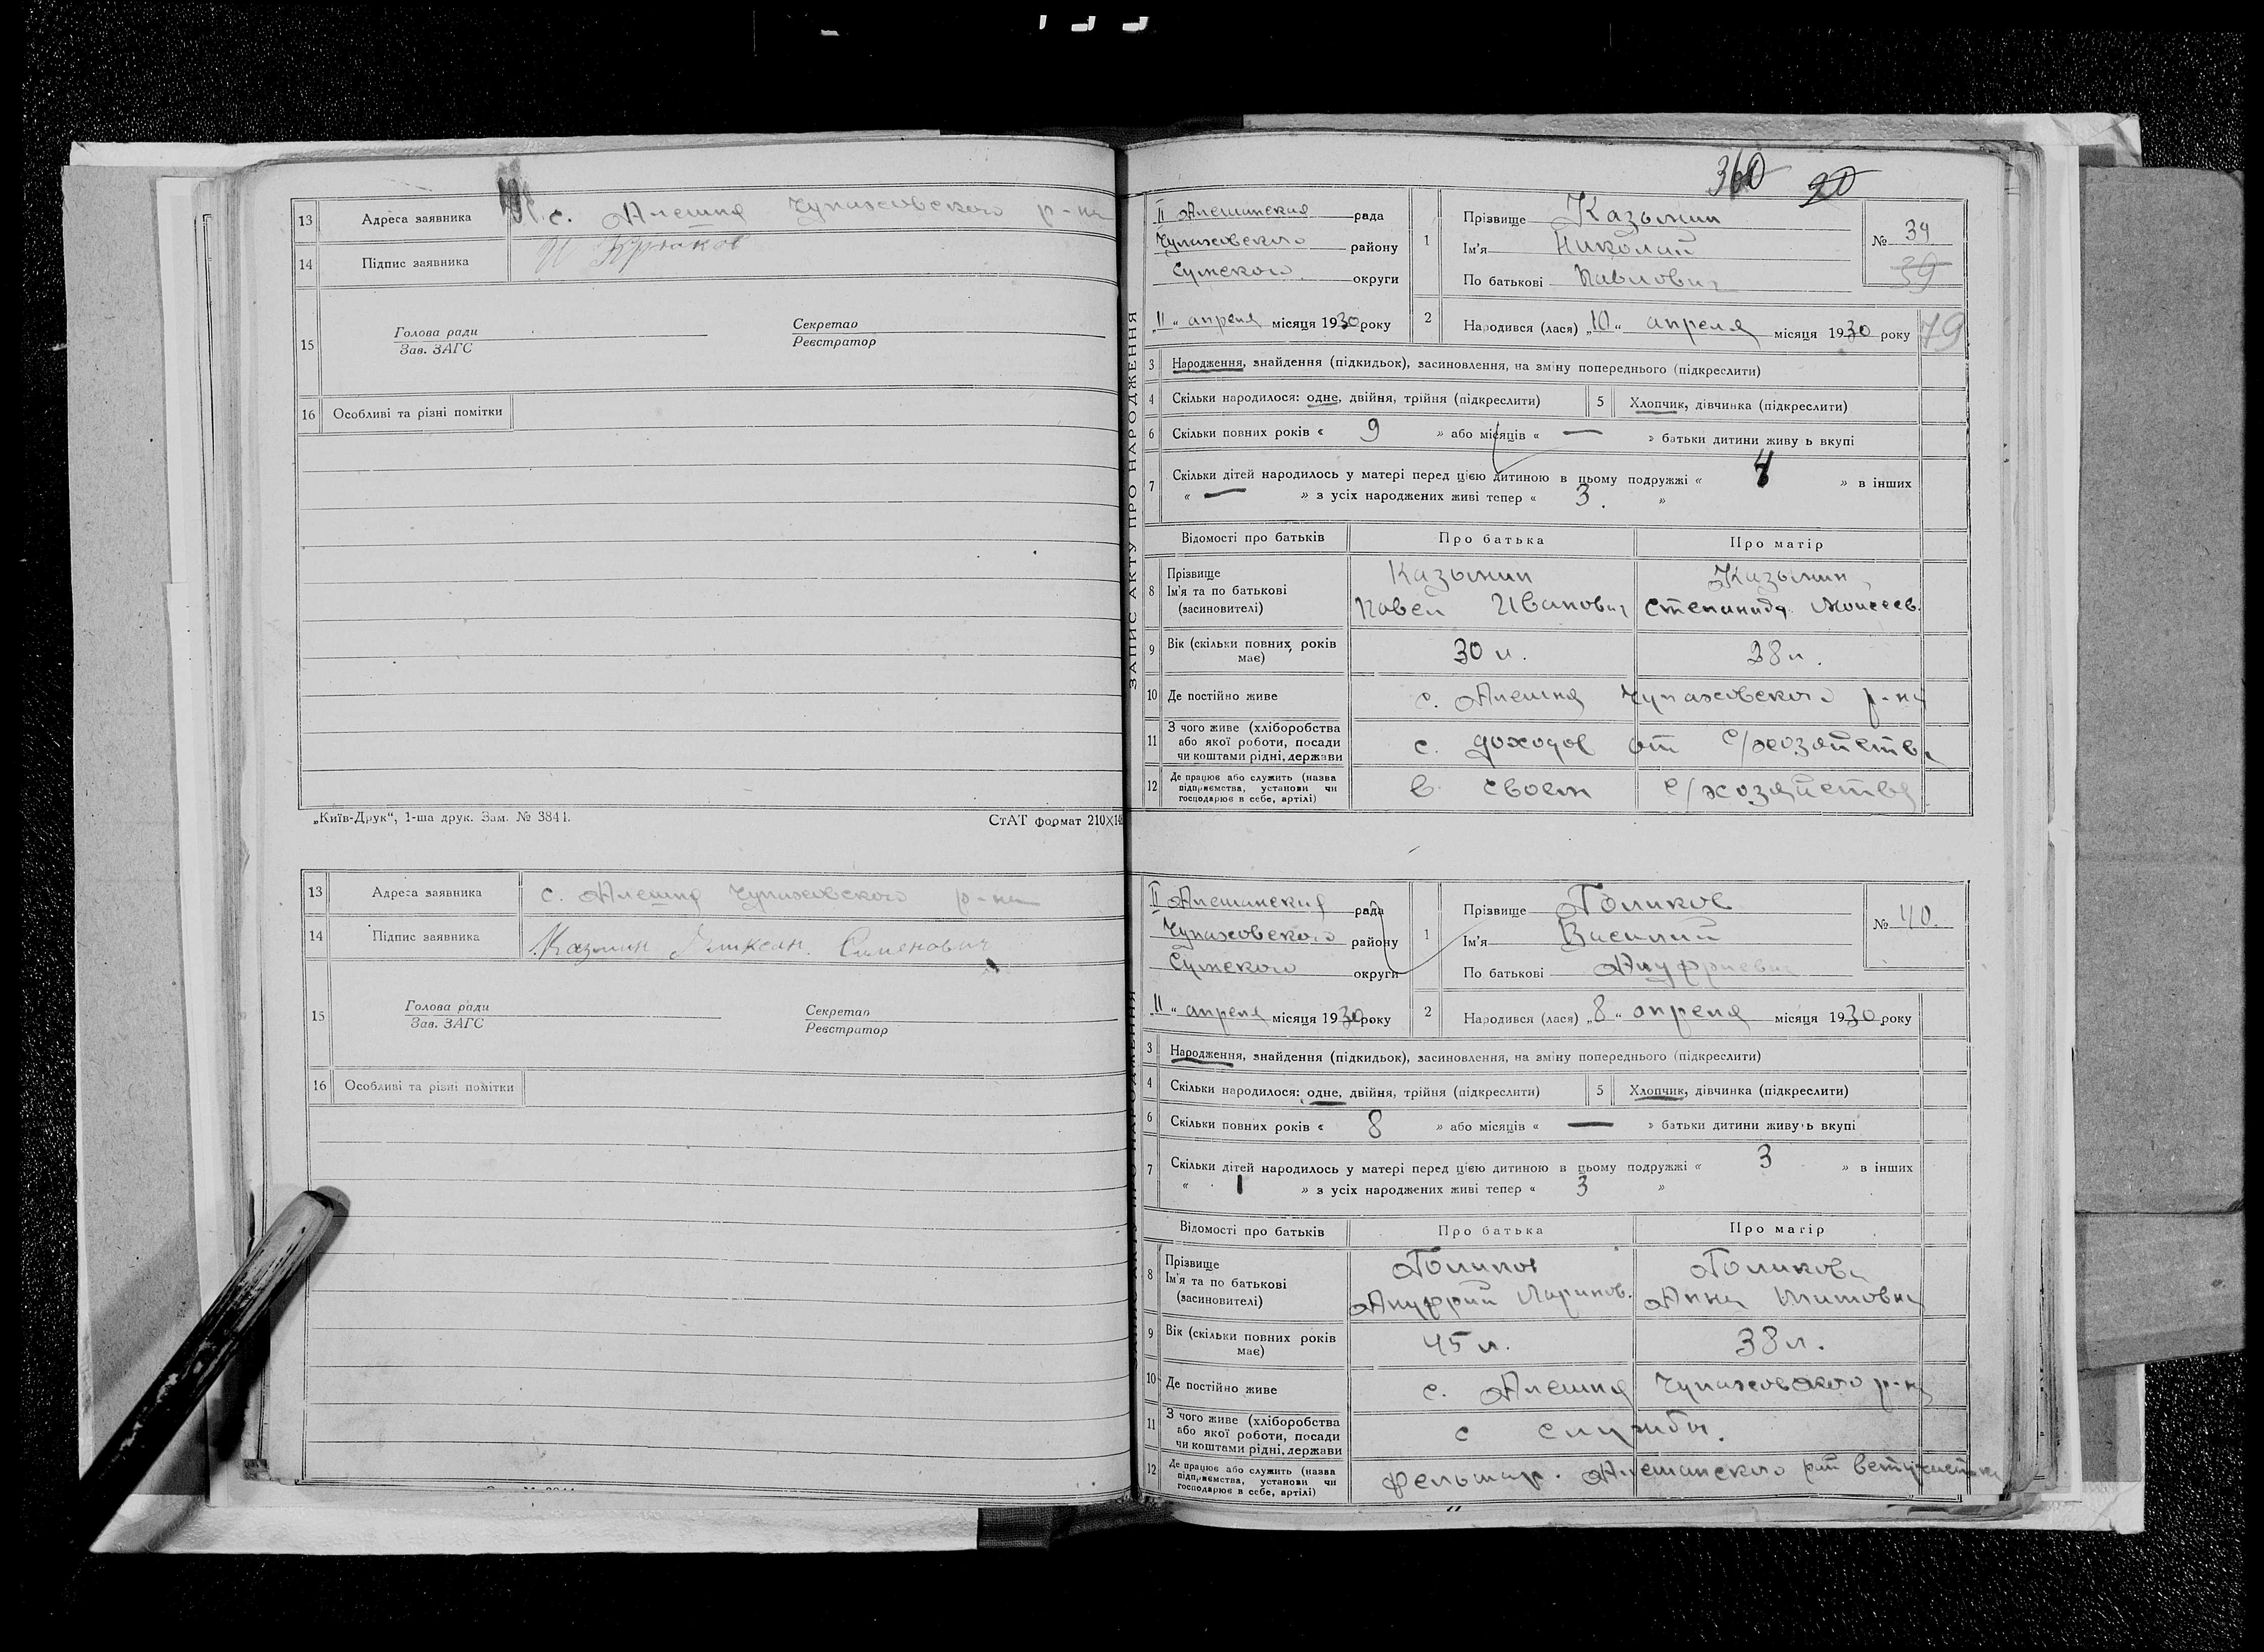 13 Адреса заявника с. Алешня Чупаховского р-на
14 Підпис заявника Крюков
15 Голова ради Секретар
Зав. ЗАГС Реєстратор
16 Особливі та різні помітки
„Київ-Друк“, 1-ша друк. Зам. № 3844. СтАТ формат 210X14
13 Адреса заявника с. Алешня Чупаховского р-на
14 Підпис заявника Казмин Семенович
15 Голова ради Секретар
Зав. ЗАГС Реєстратор
16 Особливі та різні помітки
360 20
ЗАПИС АКТУ ПРО НАРОДЖЕННЯ
II Алешанская рада
Чупаховского району
Сумского округи
„11“ апреля місяця 1930 року
1 Прізвище Казьмин
Ім'я Николай
По батькові Павлович
№ 39
39
2 Народився (лася) „10“ апреля місяця 1930 року
79
3 Народження, знайдення (підкидьок), засиновлення, на зміну попереднього (підкреслити)
4 Скільки народилося: одне, двійня, трійня (підкреслити) 5 Хлопчик, дівчинка (підкреслити)
6 Скільки повних років « 9 » або місяців « — » батьки дитини живуть вкупі
7 Скільки дітей народилось у матері перед цією дитиною в цьому подружжі « 4 » в інших
« — » з усіх народжених живі тепер « 3. »
Відомості про батьків Про батька Про матір
8 Прізвище Казьмин Казьмин
Ім'я та по батькові Павел Иванович Степанида Моисеев.
(засиновителі)
9 Вік (скільки повних років має) 30 л. 28 л.
10 Де постійно живе с. Алешня Чупаховского р-на
11 З чого живе (хліборобства
або якої роботи, посади с. доходов от с/хозяйства
чи коштами рідні, держави
12 Де працює або служить (назва
підприємства, установи чи в своем с/хозяйстве
господарює в себе, артілі)
II Алешанская рада
Чупаховского району
Сумского округи
„11“ апреля місяця 1930 року
1 Прізвище Голиков
Ім'я Василий
По батькові Ануфриевич
№ 40.
2 Народився (лася) „8“ апреля місяця 1930 року
3 Народження, знайдення (підкидьок), засиновлення, на зміну попереднього (підкреслити)
4 Скільки народилося: одне, двійня, трійня (підкреслити) 5 Хлопчик, дівчинка (підкреслити)
6 Скільки повних років « 8 » або місяців « — » батьки дитини живуть вкупі
7 Скільки дітей народилось у матері перед цією дитиною в цьому подружжі « 3 » в інших
« 1 » з усіх народжених живі тепер « 3 »
Відомості про батьків Про батька Про матір
8 Прізвище Голиков Голикова
Ім'я та по батькові Ануфрий Ларинов. Анна Титовна
(засиновителі)
9 Вік (скільки повних років має) 45 л. 38 л.
10 Де постійно живе с. Алешня Чупаховского р-на
11 З чого живе (хліборобства
або якої роботи, посади с службы.
чи коштами рідні, держави
12 Де працює або служить (назва
підприємства, установи чи фельшар. Алешанского рай ветучастка
господарює в себе, артілі)